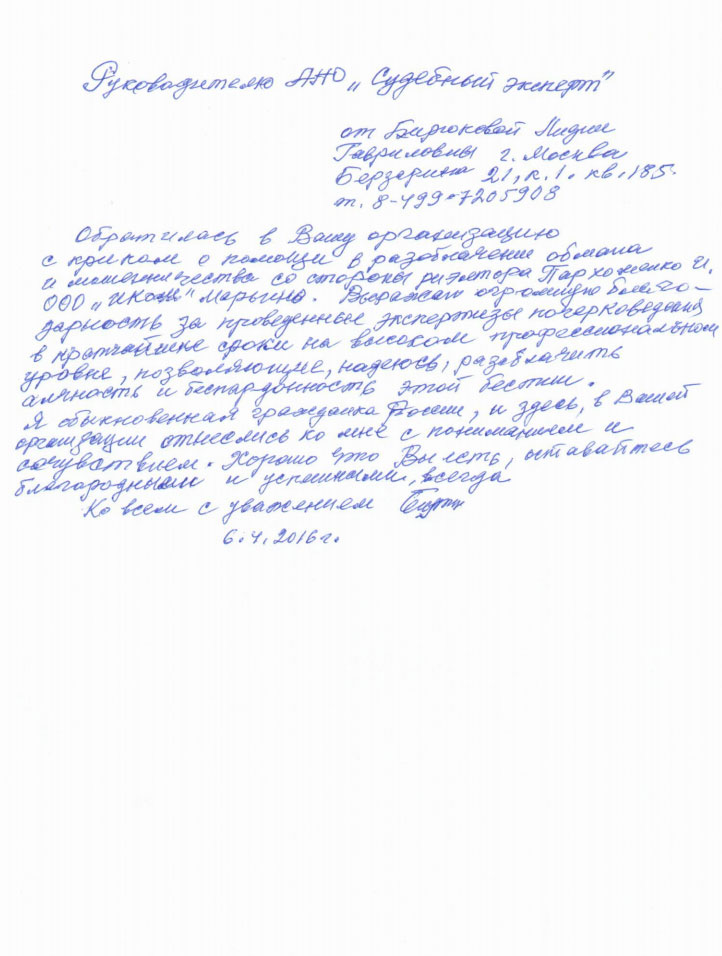 Руководителю АНО „Судебный эксперт"
от Бирюковой Лидии
Гавриловны г. Москва
Берзарина 21, к.1. кв. 185.
т. 8-499-7205908
Обратилась в Вашу организацию
с криком о помощи в разоблачении обмана
и мошенничества со стороны риэлтора Пархоменко И.
ООО „ Марьино. Выражаю огромную благо-
дарность за проведенные экспертизы почерковедения
в кратчайшие сроки на высоком профессиональном
уровне, позволяющие, надеюсь, разоблачить
алчность и беспардонность этой бестии.
Я обыкновенная гражданка России, и здесь, в Вашей
организации отнеслись ко мне с пониманием и
сочувствием. Хорошо что Вы есть, оставайтесь
благородными и успешными, всегда
Ко всем с уважением
6.4.2016г.